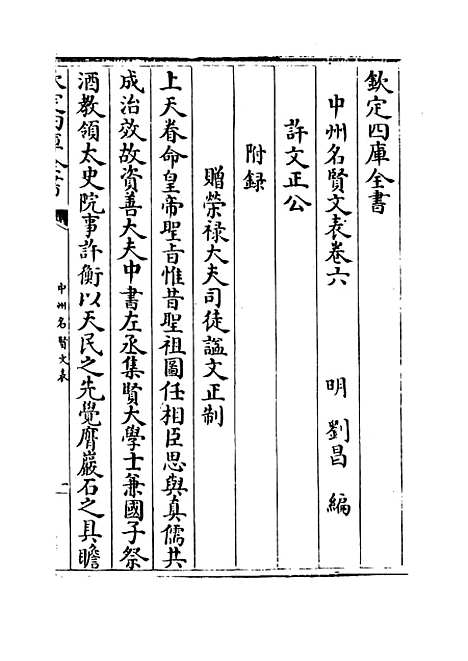 欽定四庫全書
中州名賢文表卷六
明 劉昌 編
許文正公
附録
贈榮禄大夫司徒諡文正制
上天眷命皇帝聖旨惟昔聖祖圖任相臣思與真儒共
成治效故資善大夫中書左丞集賢大學士兼國子祭
酒教領太史院事許衡以天民之先覺膺巖石之具瞻
中州名賢文表